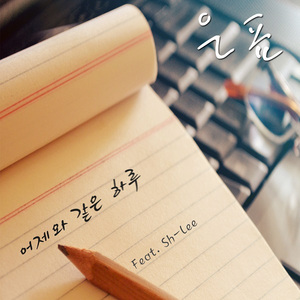 어제와 같은 하루
Feat. Sh-Lee